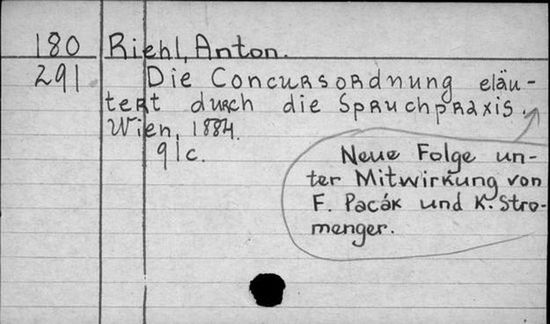 180 Riehl, Anton.
291 Die Concursordnung eläu-
tert durch die Spruchpraxis.
Wien, 1884.
91c.
Neue Folge un-
ter Mitwirkung von
F. Pacák und K. Stro-
menger.